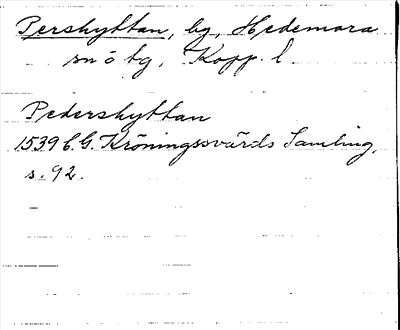 Pershyttan, by, Hedemora
sn o tg, Kopp. l.
Pedershyttan
1539 C.G. Kröningssvärds Samling,
s. 92.